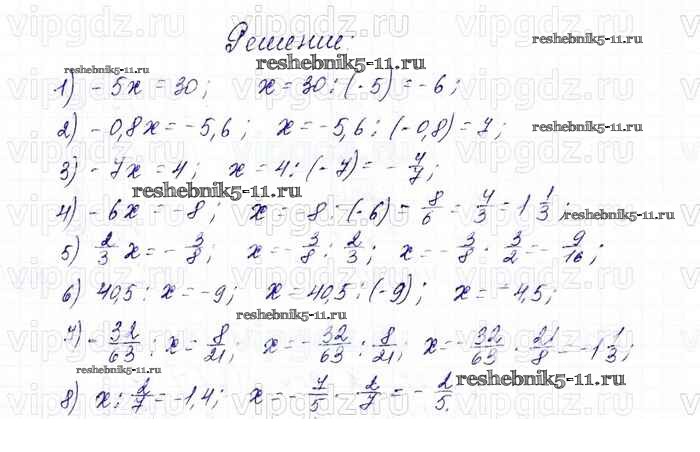 Решение:
reshebnik5-11.ru
reshebnik5-11.ru
reshebnik5-11.ru
1) -5x = 30; x = 30 : (-5) = -6;
2) -0,8x = -5,6; x = -5,6 : (-0,8) = 7;
reshebnik5-11.ru
3) -7x = 4; x = 4 : (-7) = -4/7;
reshebnik5-11.ru
4) -6x = -8; x = -8 : (-6) = 8/6 = 4/3 = 1 1/3;
reshebnik5-11.ru
5) 2/3 x = -3/8; x = -3/8 : 2/3; x = -3/8 · 3/2 = -9/16;
6) 40,5 : x = -9; x = 40,5 : (-9); x = -4,5;
reshebnik5-11.ru
7) -32/63 : x = 8/21; x = -32/63 : 8/21; x = -32/63 · 21/8 = -1 1/3;
reshebnik5-11.ru
reshebnik5-11.ru
8) x : 2/7 = -1,4; x = -7/5 · 2/7 = -2/5.
vipgdz.ru vipgdz.ru vipgdz.ru